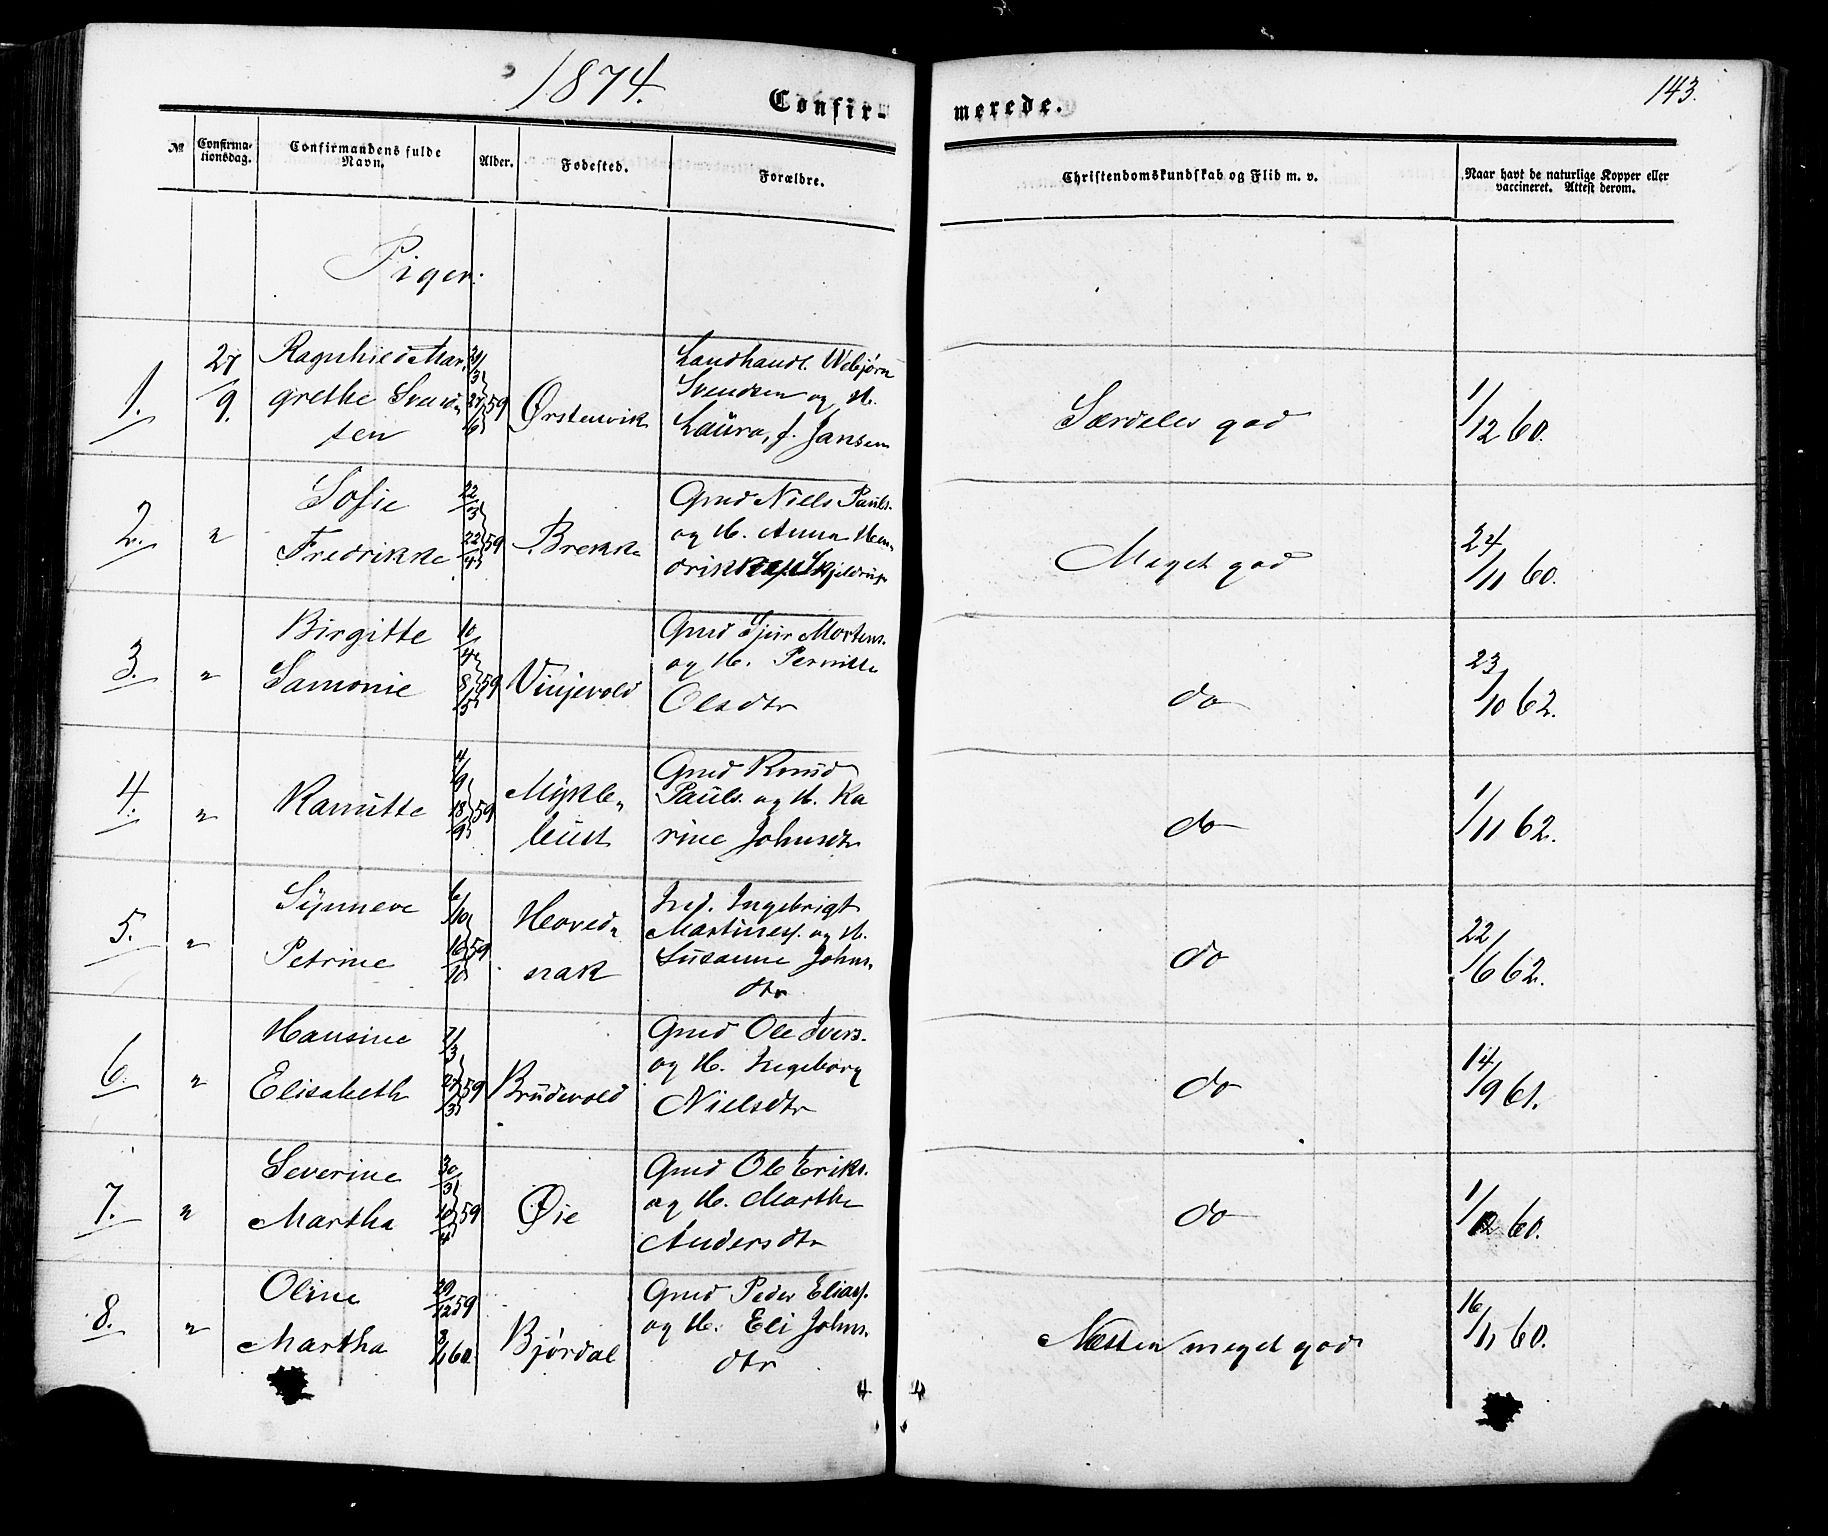 1874.
143.
Confir-
merede.
№
Confirma-
tionsdag.
Confirmandens fulde
Navn.
Alder.
Fødested.
Forældre.
Christendomskundskab og Flid m. v.
Naar havt de naturlige Kopper eller
vaccineret. Attest derom.
Piger.
1.
27/9.
Ragnhild Mar,
grethe Svend,
sen
21/3
27/6 59
Ørstenvik
Landhandl. Webjørn
Svendsen og H.
Laura, f. Jansen
Særdeles god
1/12 60.
2.
"
Sofie
Fredrikke
22/3
22/4 59
Brekke
Gmd Niels Pauls.
og H. Anna Hen,
drikke f. Skjeldrup
Meget god
24/11 60.
3.
"
Birgitte
Samonie
10/4
8/5 59
Vinjevold
Gmd Sjur Mortens.
og H. Pernille
Olsdtr
do
23/10 62.
4.
"
Kanutte
4/9
18/9 59
Mykle,
bust
Gmd Knud
Pauls. og H. Ka
rine Johnsdtr
do
1/11 62.
5.
"
Synneve
Petrine
6/10
16/10 59
Hovde,
nak
Ind. Ingebrigt
Martiness. og H.
Susanne Johns,
dtr
do
22/6 62.
6.
"
Hansine
Elisabeth
7/3
27/3 59
Brudevold
Gmd Ole Ivers.
og H. Ingeborg
Nielsdtr
do
14/9 61.
7.
"
Severine
Martha
30/3
10/4 59
Øie
Gmd Ole Eriks.
og H. Marthe
Andersdtr
do
1/12 60.
8.
"
Oline
Martha
29/12 59
3/1 60
Bjørdal
Gmd Peder Eliass.
og H. Eli Johns.
dtr
Næsten meget god
16/11 60.